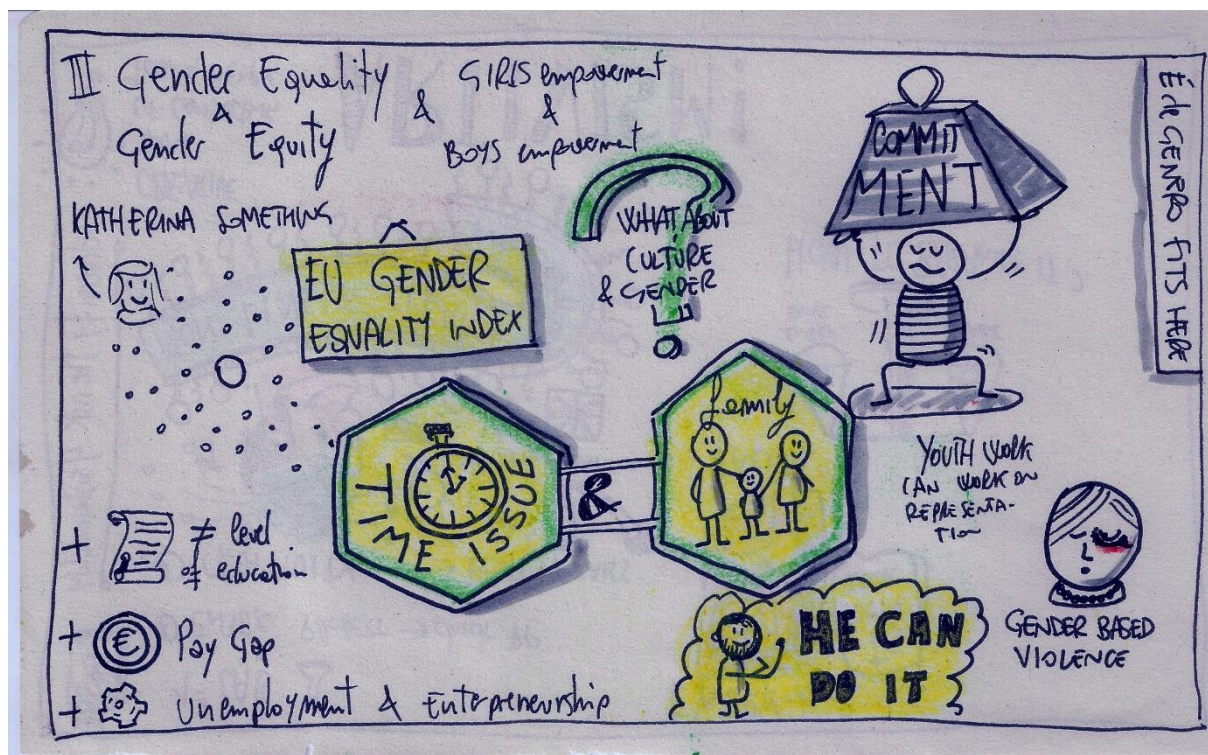 III Gender Equality & GIRLS empowerment
& &
Gender Equity BOYS empowerment
KATHERINA SOMETHING
EU GENDER
EQUALITY INDEX
WHAT ABOUT
CULTURE
& GENDER
COMMIT
MENT
É de GENRRO FITS HERE
TIME ISSUE
&
family
YOUTH WORK
CAN WORK ON
REPRESENTA-
TION
+ ≠ level
of education
+ € Pay Gap
+ Unemployment & Enterpreneurship
HE CAN
DO IT
GENDER BASED
VIOLENCE